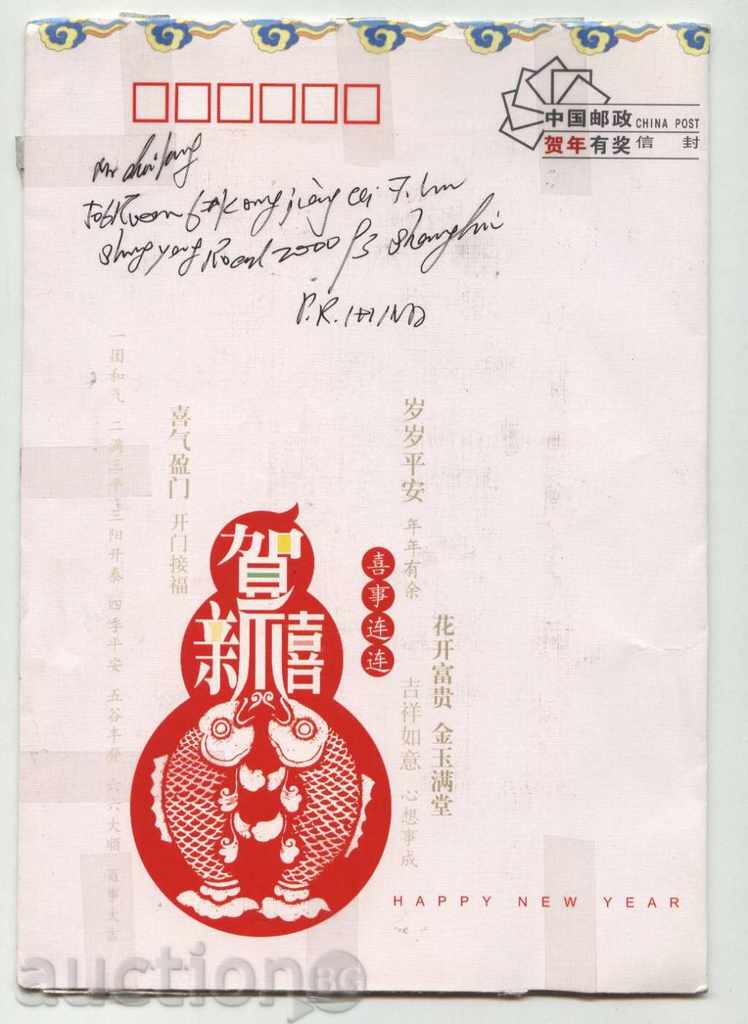 中国邮政 CHINA POST
贺年有奖 信封
Road 2000 Shanghai
P.R.
一团和气 二满三平 三阳开泰 四季平安 五谷丰登 六六大顺 万事大吉
喜气盈门 开门接福
岁岁平安 年年有余 吉祥如意 心想事成
花开富贵 金玉满堂
喜事连连
贺
新禧
HAPPY NEW YEAR
auction BG